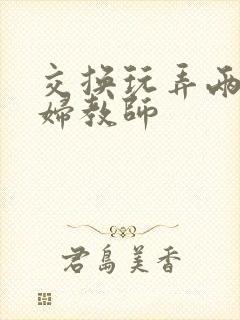 交换玩弄两
婦教師
君島美香